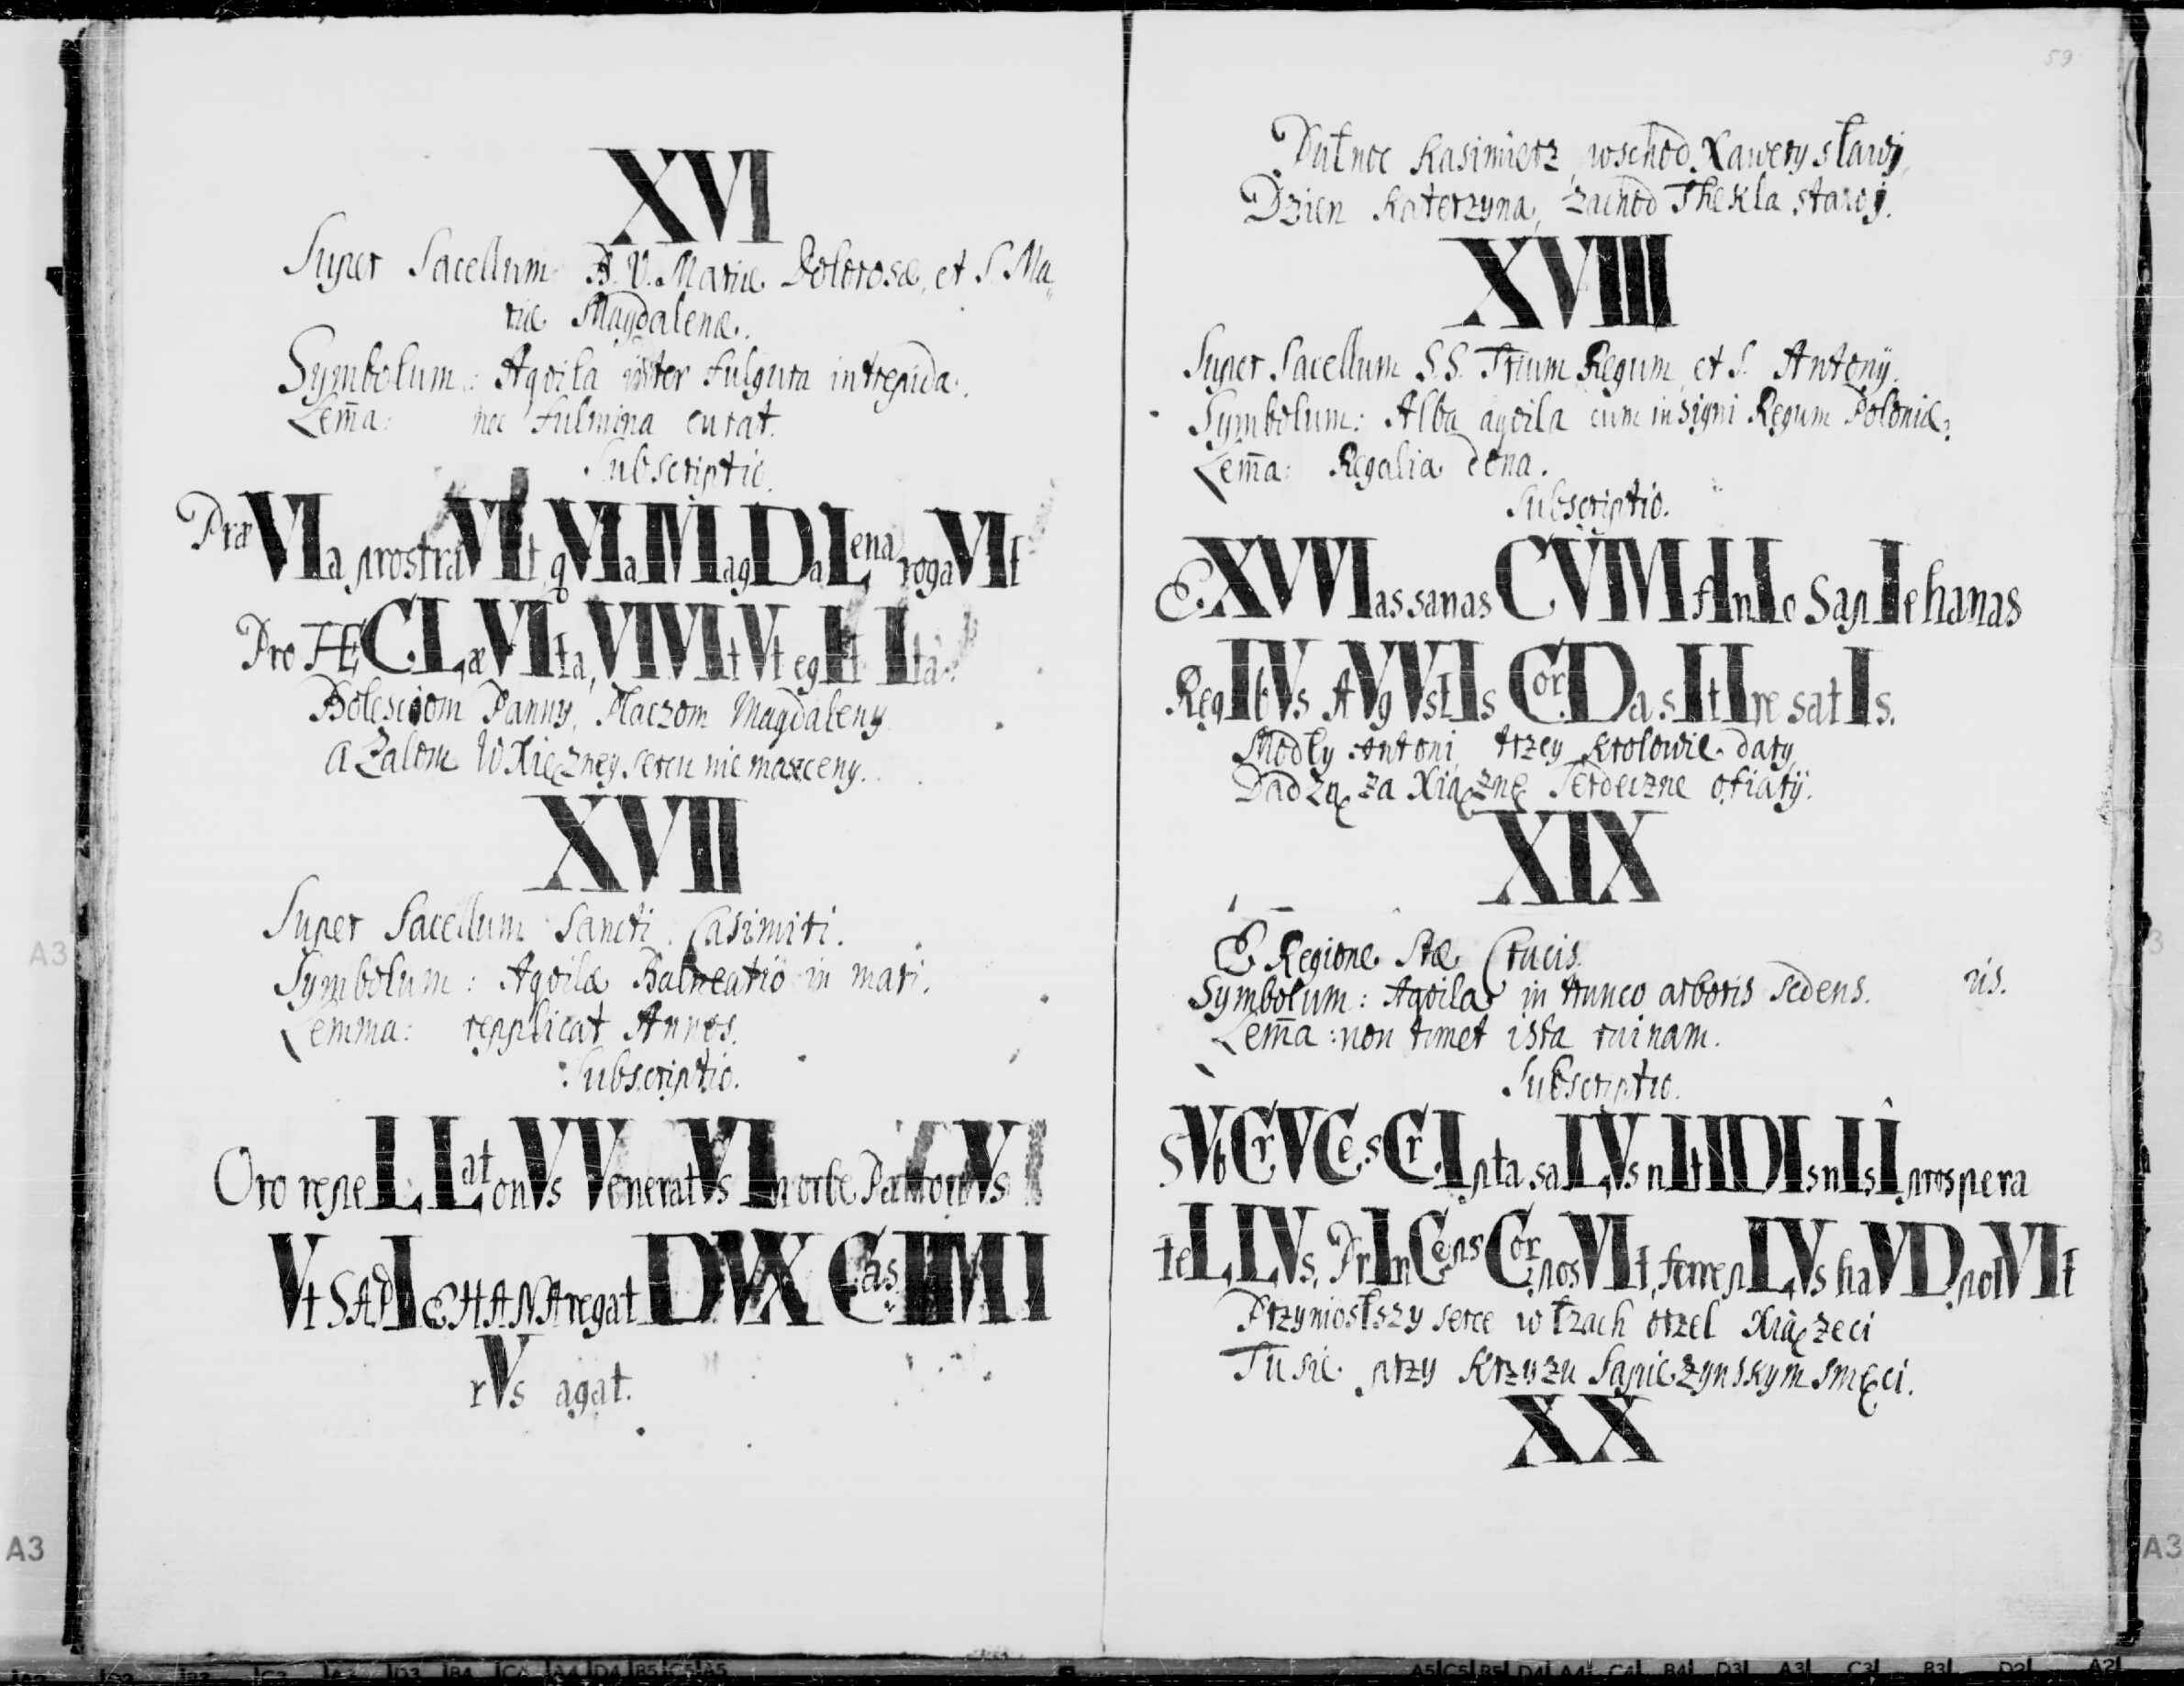 XVI
Super Sacellum B. V. Mariæ Dolorosæ, et S. Ma
riæ Magdalenæ.
Symbolum: Aqvila inter fulgura intrepida.
Lem̃a: nec fulmina curat.
Subscriptio.
PræVIa prostraVIt, qVIa MagDaLena rogaVIt
Pro THECLæ VIta, VIVIt Vt egIt Ita.
Bolesciom Panny, Płaczom Magdaleny
A Zalom W Xięzney sercu nie masz ceny.
XVII
Super Sacellum Sancti Casimiri.
Symbolum: Aqvilæ Balneatio in mari.
Lemma: repplicat Annos.
Subscriptio.
Oro repeLLat onVs VeneratVs In orbe
Vt SAPIEHANA regat DVX CasIMI
rVs agat.
59
Pułnoc Kasimierz, wschod Xawery sławi,
Dzien Katerzyna, zachod Thekla stawi.
XVIII
Super Sacellum S.S. Trium Regum, et S. Antonij.
Symbolum: Alba aqvila cum insigni Regum Poloniæ.
Lem̃a: Regalia dona.
Subscriptio.
EXVVIas sanas CVM AntonIo SapIehanas
RegIbVs AVgVstIs CorDa sItIre satIs.
Modły Antoni, trzey krolowie dary,
Dadzą za Xiązną Serdeczne ofiary.
XIX
E Regione Stæ Crucis.
Symbolum: Aqvila in trunco arboris sedens.
ris.
Lem̃a: non timet ista ruinam.
Subscriptio.
SVb CrVCe sCrIpta saLVs nItIDIs nIsI prospera
teLLVs, PrInCeps Cor posVIt, ferre pILVs haVD potVIt
Przyniosłszy serce w łzach orzel Xiązeci
Tu sie przy Krzyzu Sapiezynskym smęci.
XX